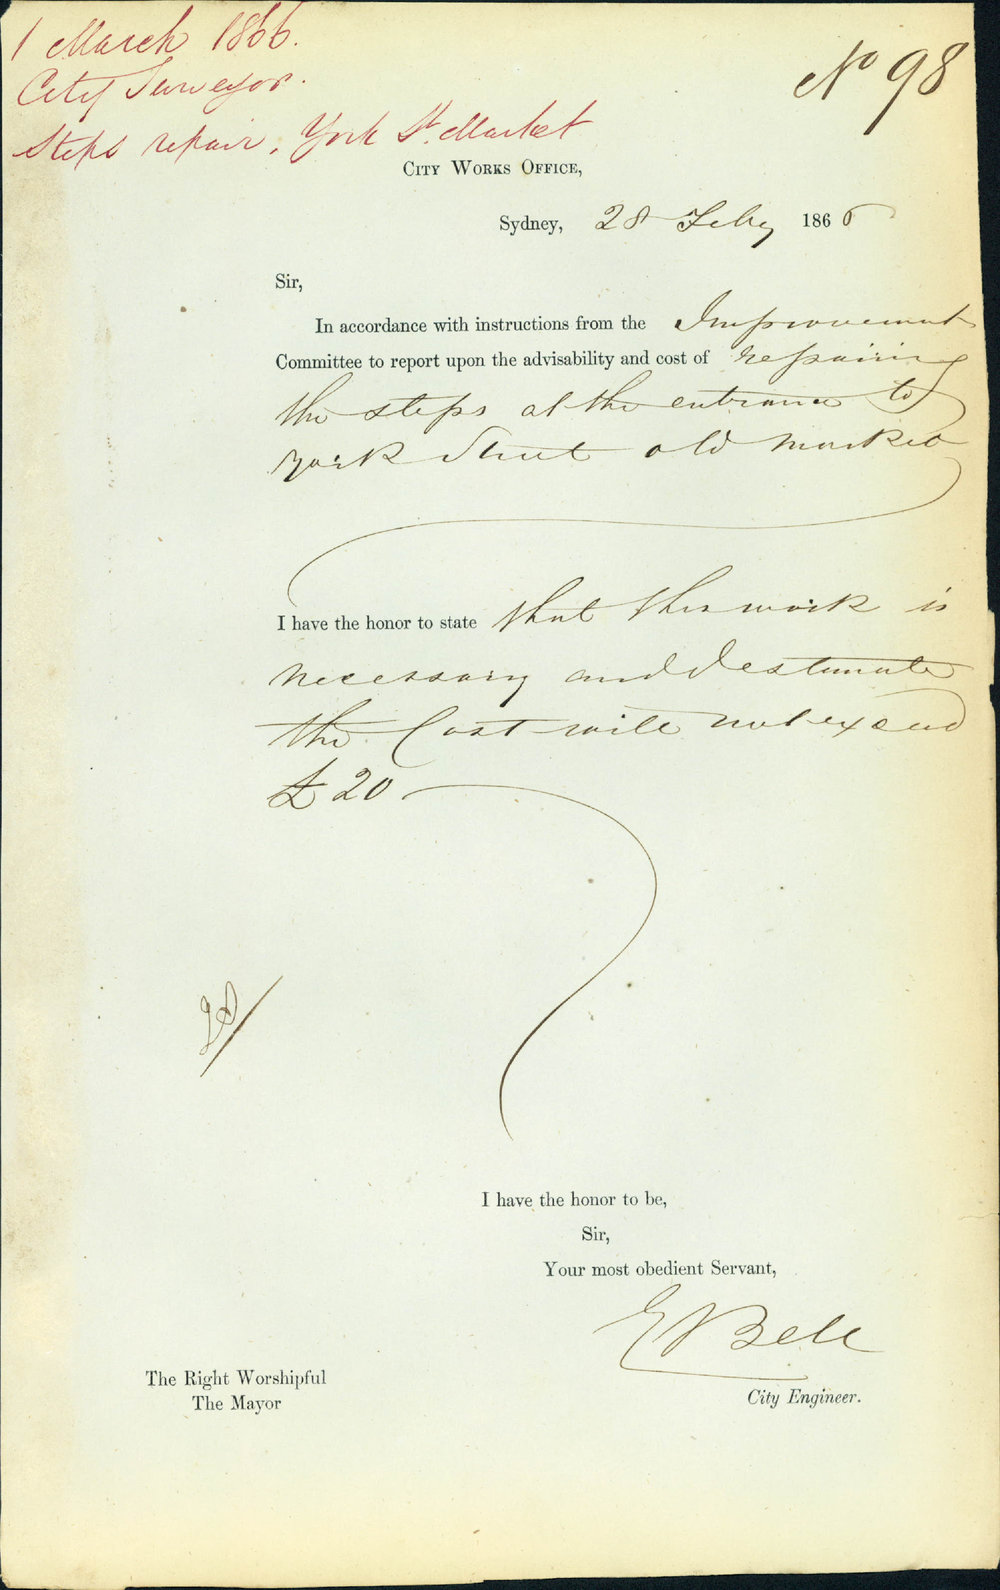 1 March 1866.
City Surveyor.
Steps repair, York St. Market
No 98
City Works Office,
Sydney, 28 Feby 1866
Sir,
In accordance with instructions from the Improvement
Committee to report upon the advisability and cost of repairing
the steps at the entrance to
York Street old market
I have the honor to state that this work is
necessary and I estimate
the Cost will not exceed
£20
I have the honor to be,
Sir,
Your most obedient Servant,
E Bell
City Engineer.
The Right Worshipful
The Mayor